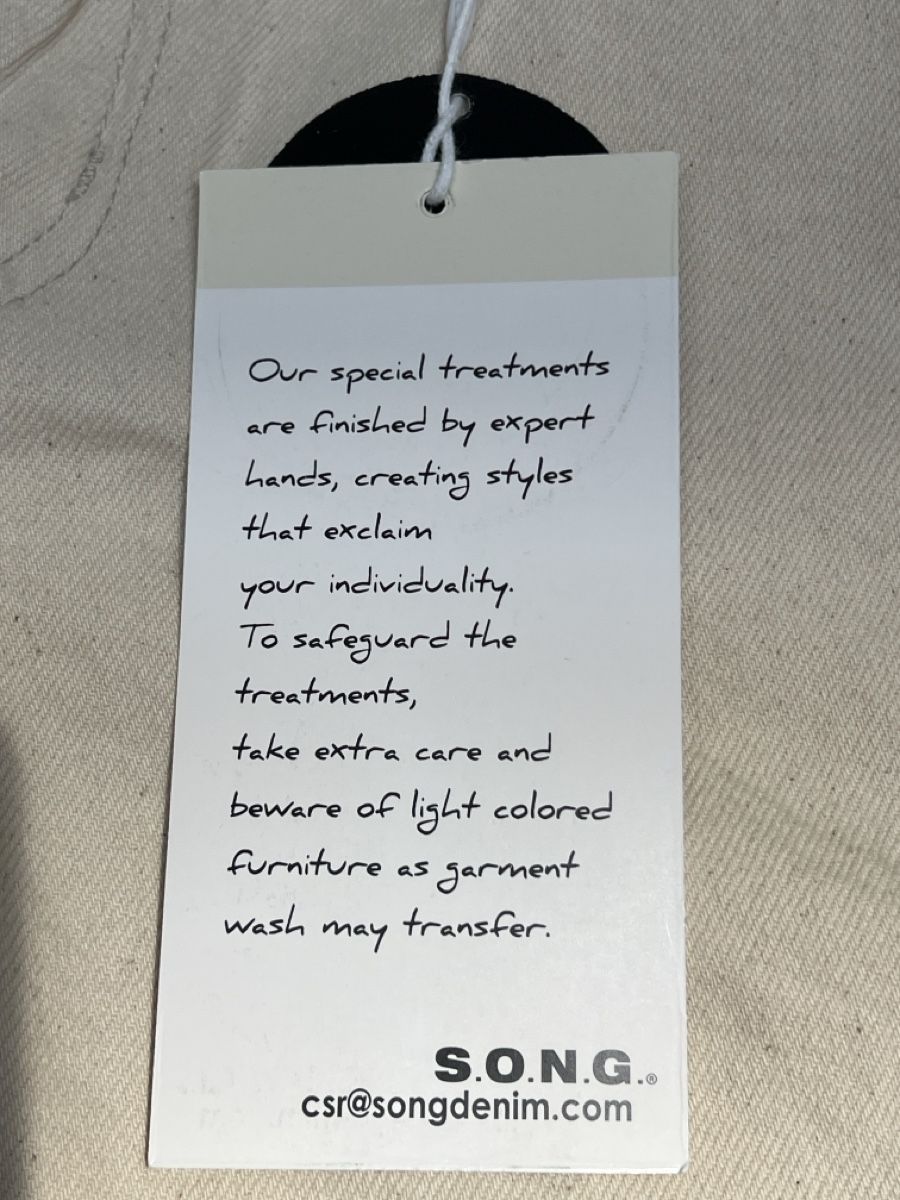 Our special treatments
are finished by expert
hands, creating styles
that exclaim
your individuality.
To safeguard the
treatments,
take extra care and
beware of light colored
furniture as garment
wash may transfer.
S.O.N.G.®
csr@songdenim.com